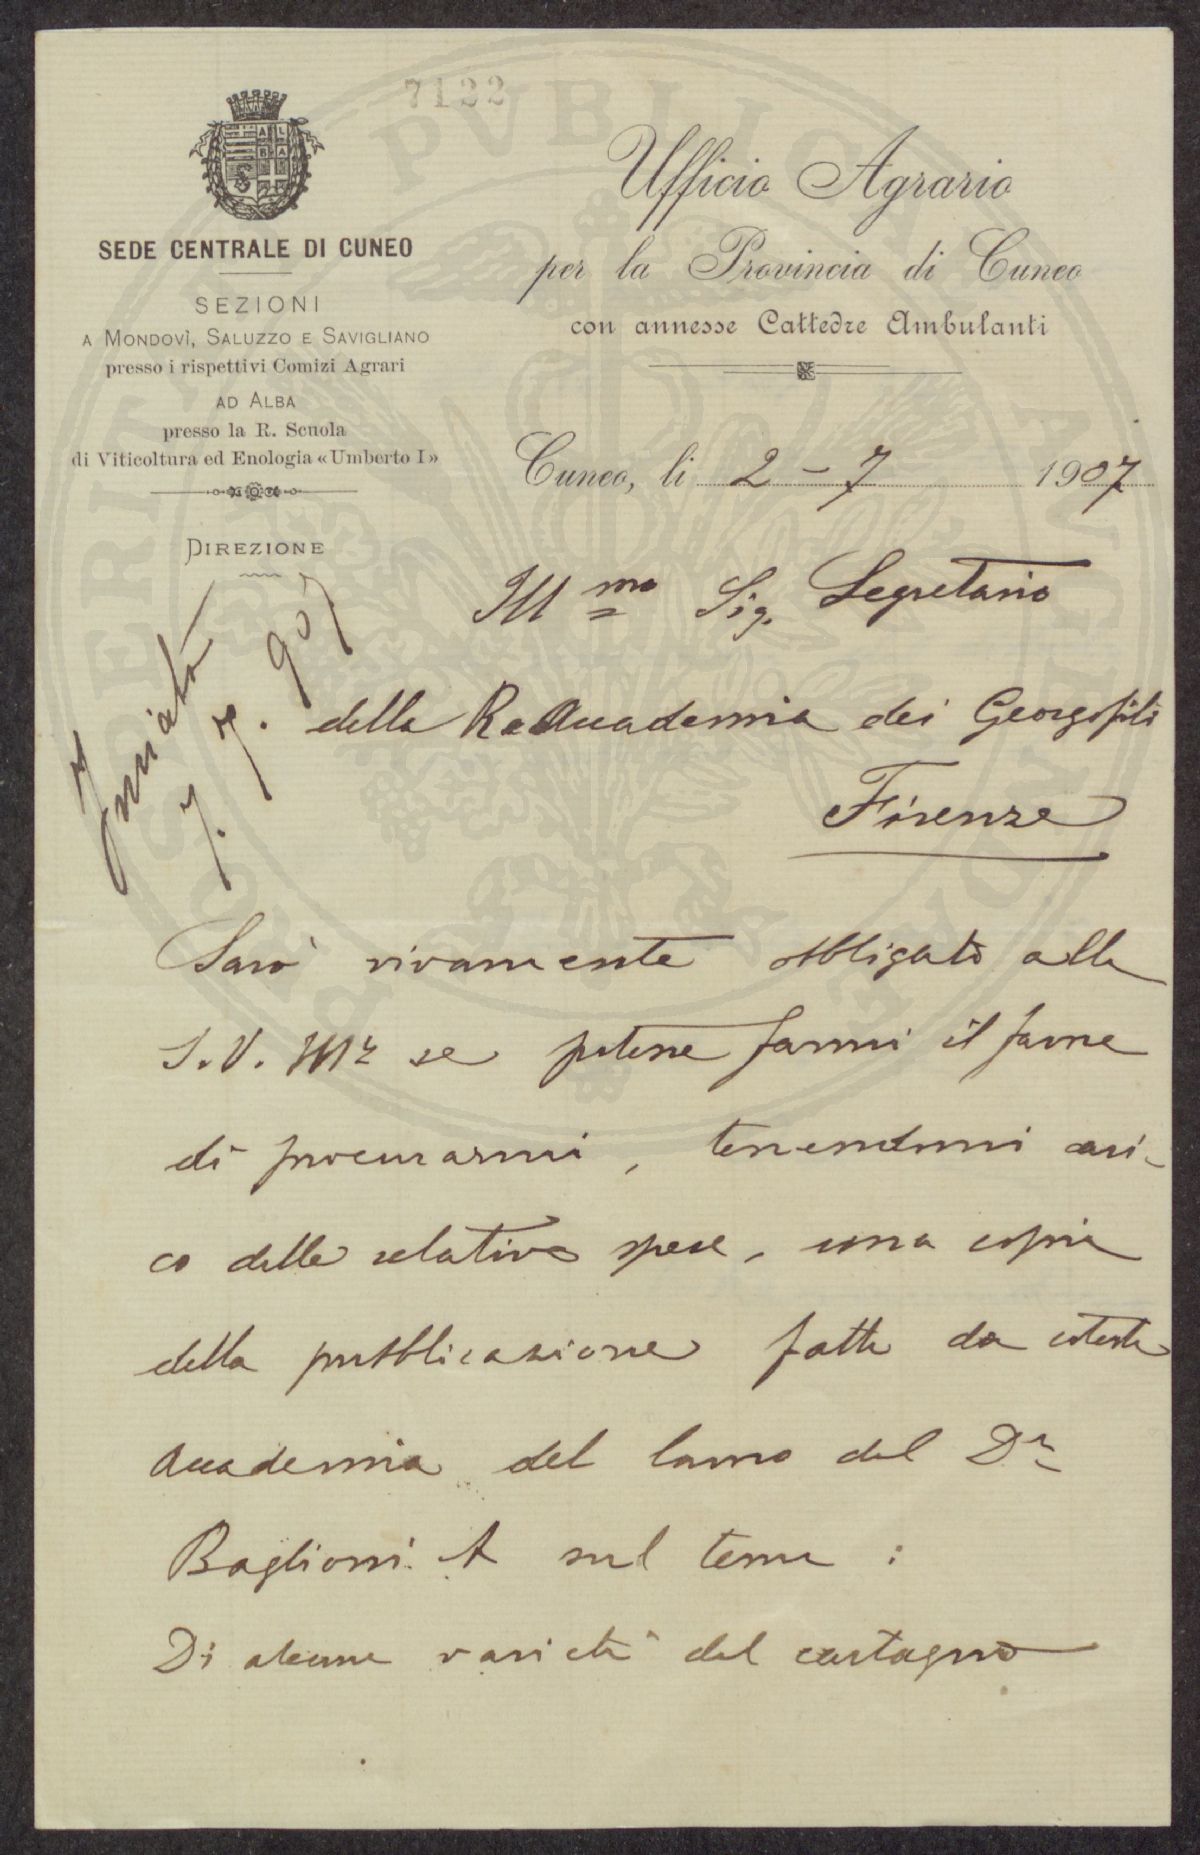 7122
SEDE CENTRALE DI CUNEO
SEZIONI
A MONDOVÌ, SALUZZO E SAVIGLIANO
presso i rispettivi Comizi Agrari
AD ALBA
presso la R. Scuola
di Viticoltura ed Enologia «Umberto I»
DIREZIONE
Inviato
7. 7. 907
Ufficio Agrario
per la Provincia di Cuneo
con annesse Cattedre Ambulanti
Cuneo, li 2 - 7 1907
Ill mo Sig. Segretario
della Re Accademia dei Georgofili
Firenze
Sarò vivamente obbligato alla
S. V. Ill se potesse farmi il favore
di procurarmi, tenendomi cari-
co delle relative spese, una copia
della pubblicazione fatta da cotesta
Accademia del lavoro del Dr
Baglioni A sul tema :
Di alcune varietà del castagno